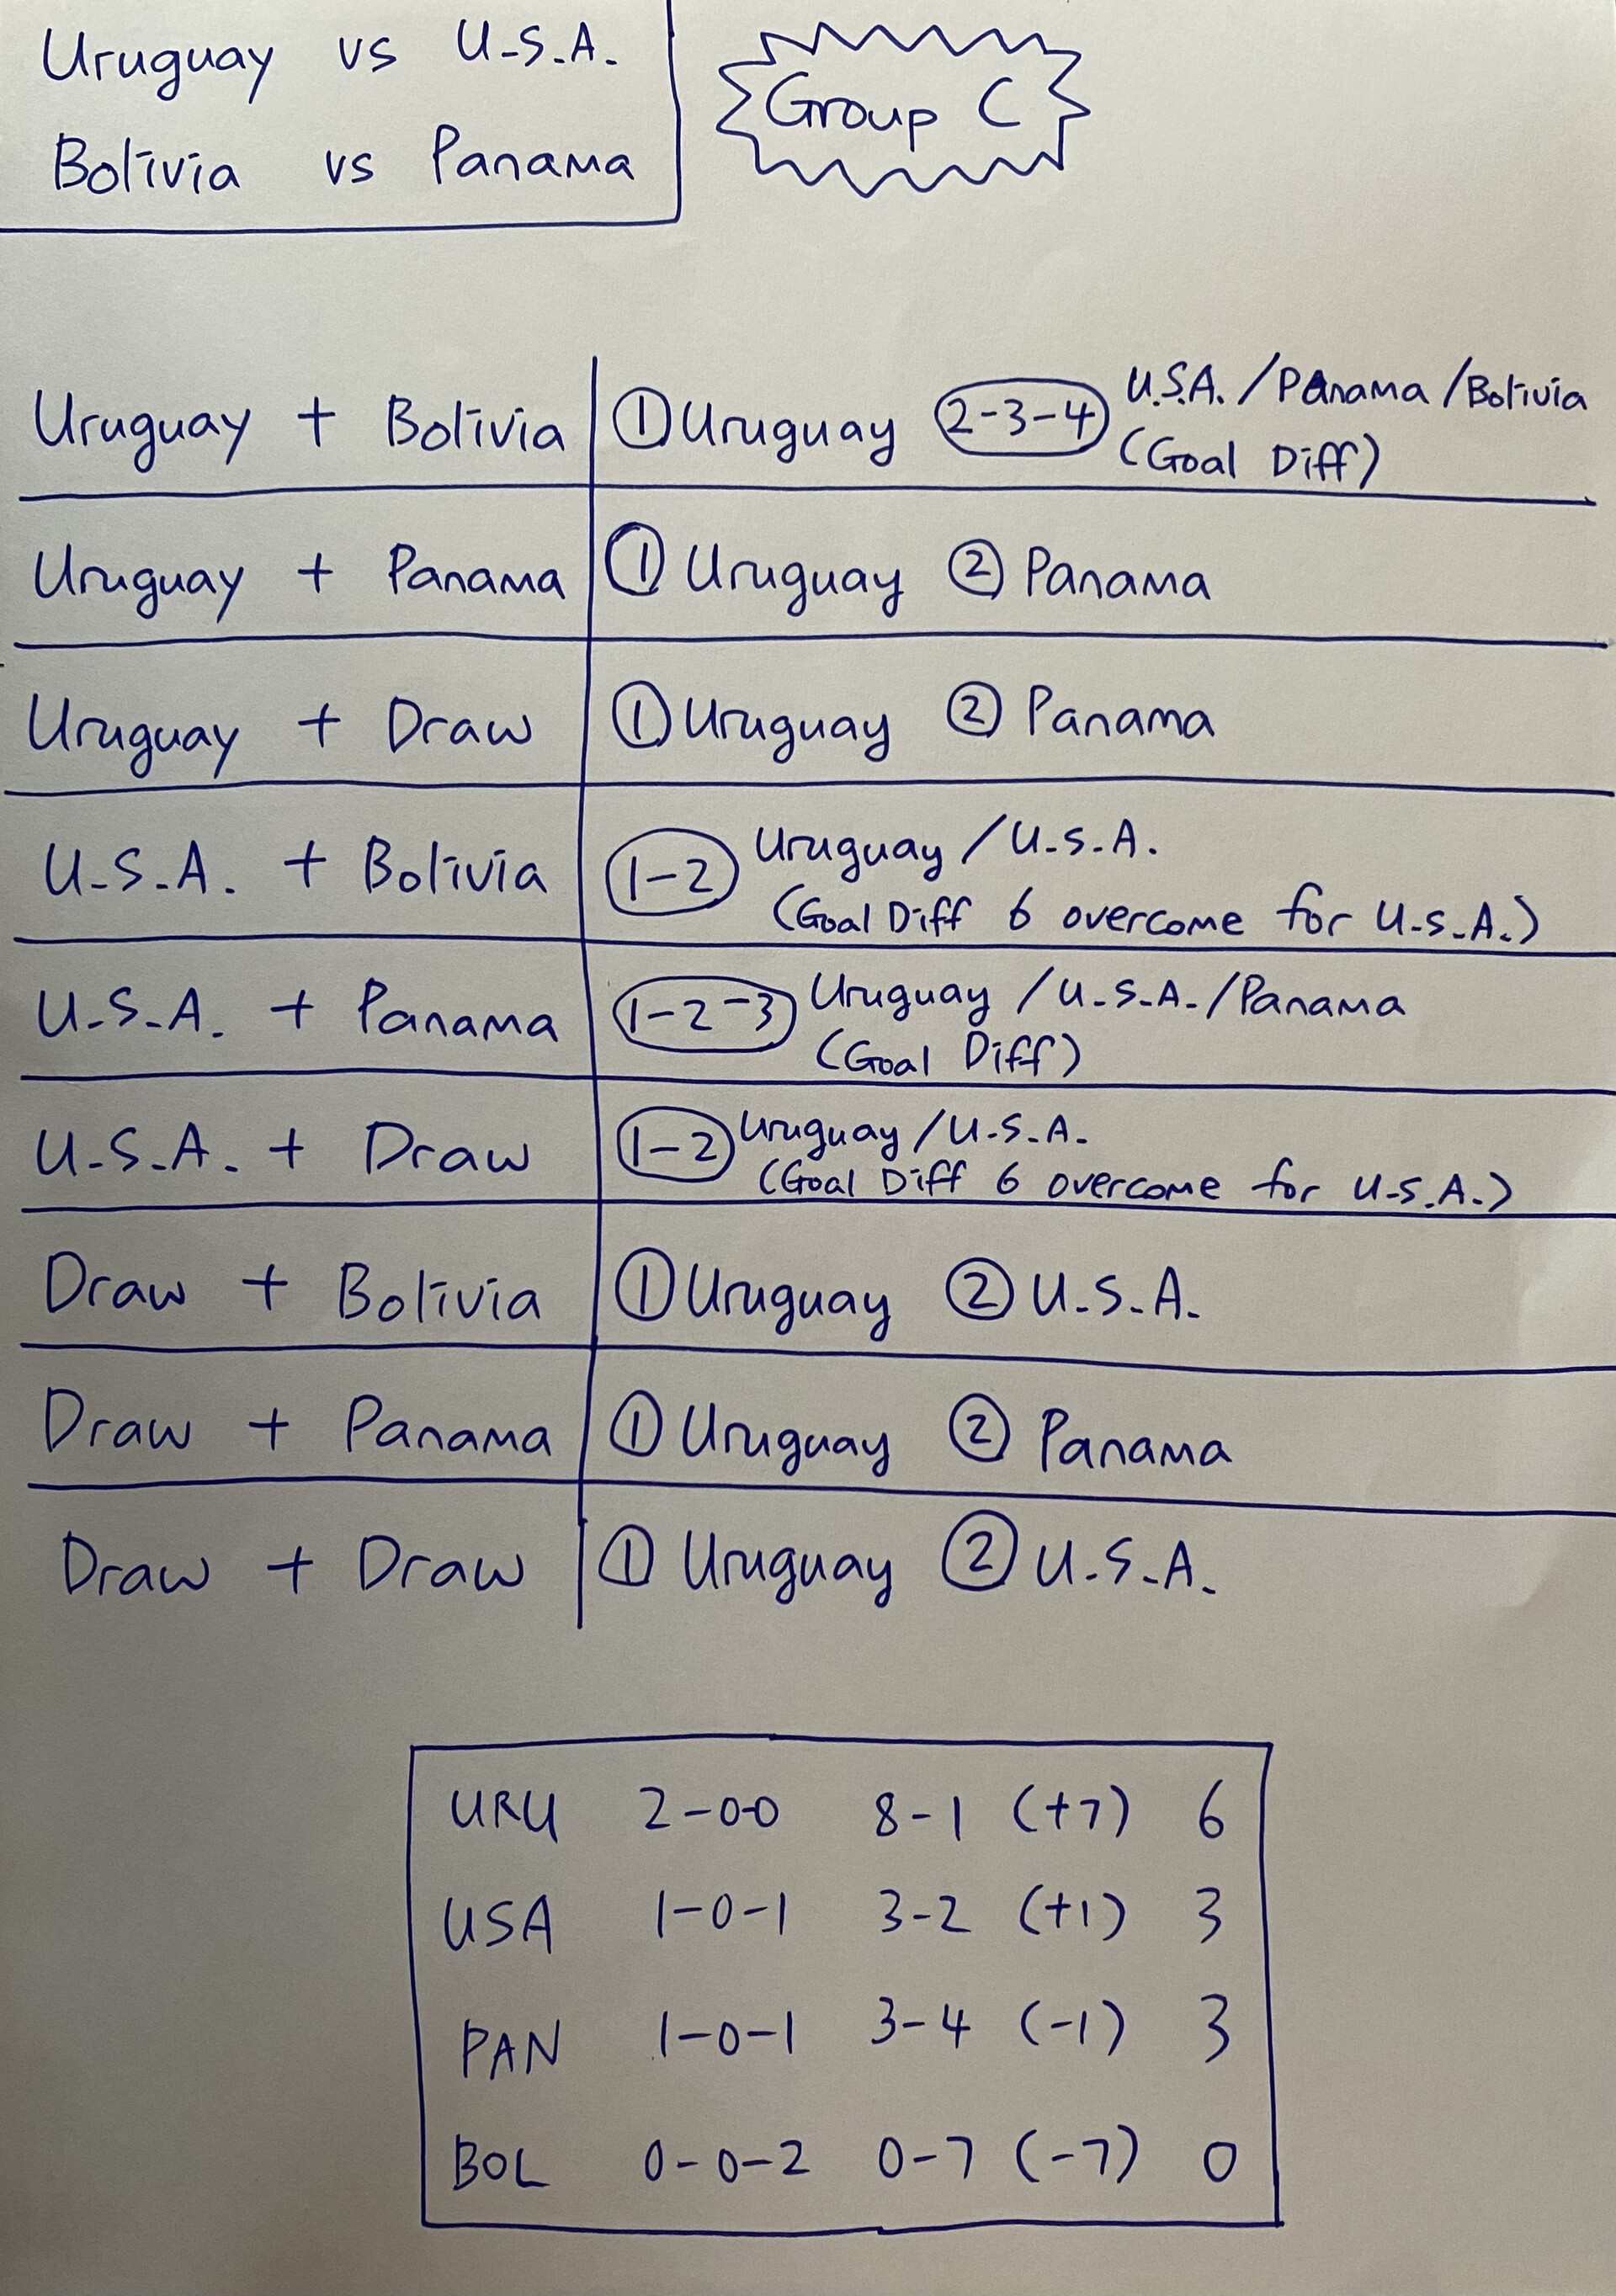 Uruguay vs U.S.A.
Bolivia vs Panama
Group C
Uruguay + Bolivia ① Uruguay 2-3-4 U.S.A. / Panama / Bolivia
(Goal Diff)
Uruguay + Panama ① Uruguay ② Panama
Uruguay + Draw ① Uruguay ② Panama
U.S.A. + Bolivia 1-2 Uruguay / U.S.A.
(Goal Diff 6 overcome for U.S.A.)
U.S.A. + Panama 1-2-3 Uruguay / U.S.A. / Panama
(Goal Diff)
U.S.A. + Draw 1-2 Uruguay / U.S.A.
(Goal Diff 6 overcome for U.S.A.)
Draw + Bolivia ① Uruguay ② U.S.A.
Draw + Panama ① Uruguay ② Panama
Draw + Draw ① Uruguay ② U.S.A.
URU 2-0-0 8-1 (+7) 6
USA 1-0-1 3-2 (+1) 3
PAN 1-0-1 3-4 (-1) 3
BOL 0-0-2 0-7 (-7) 0